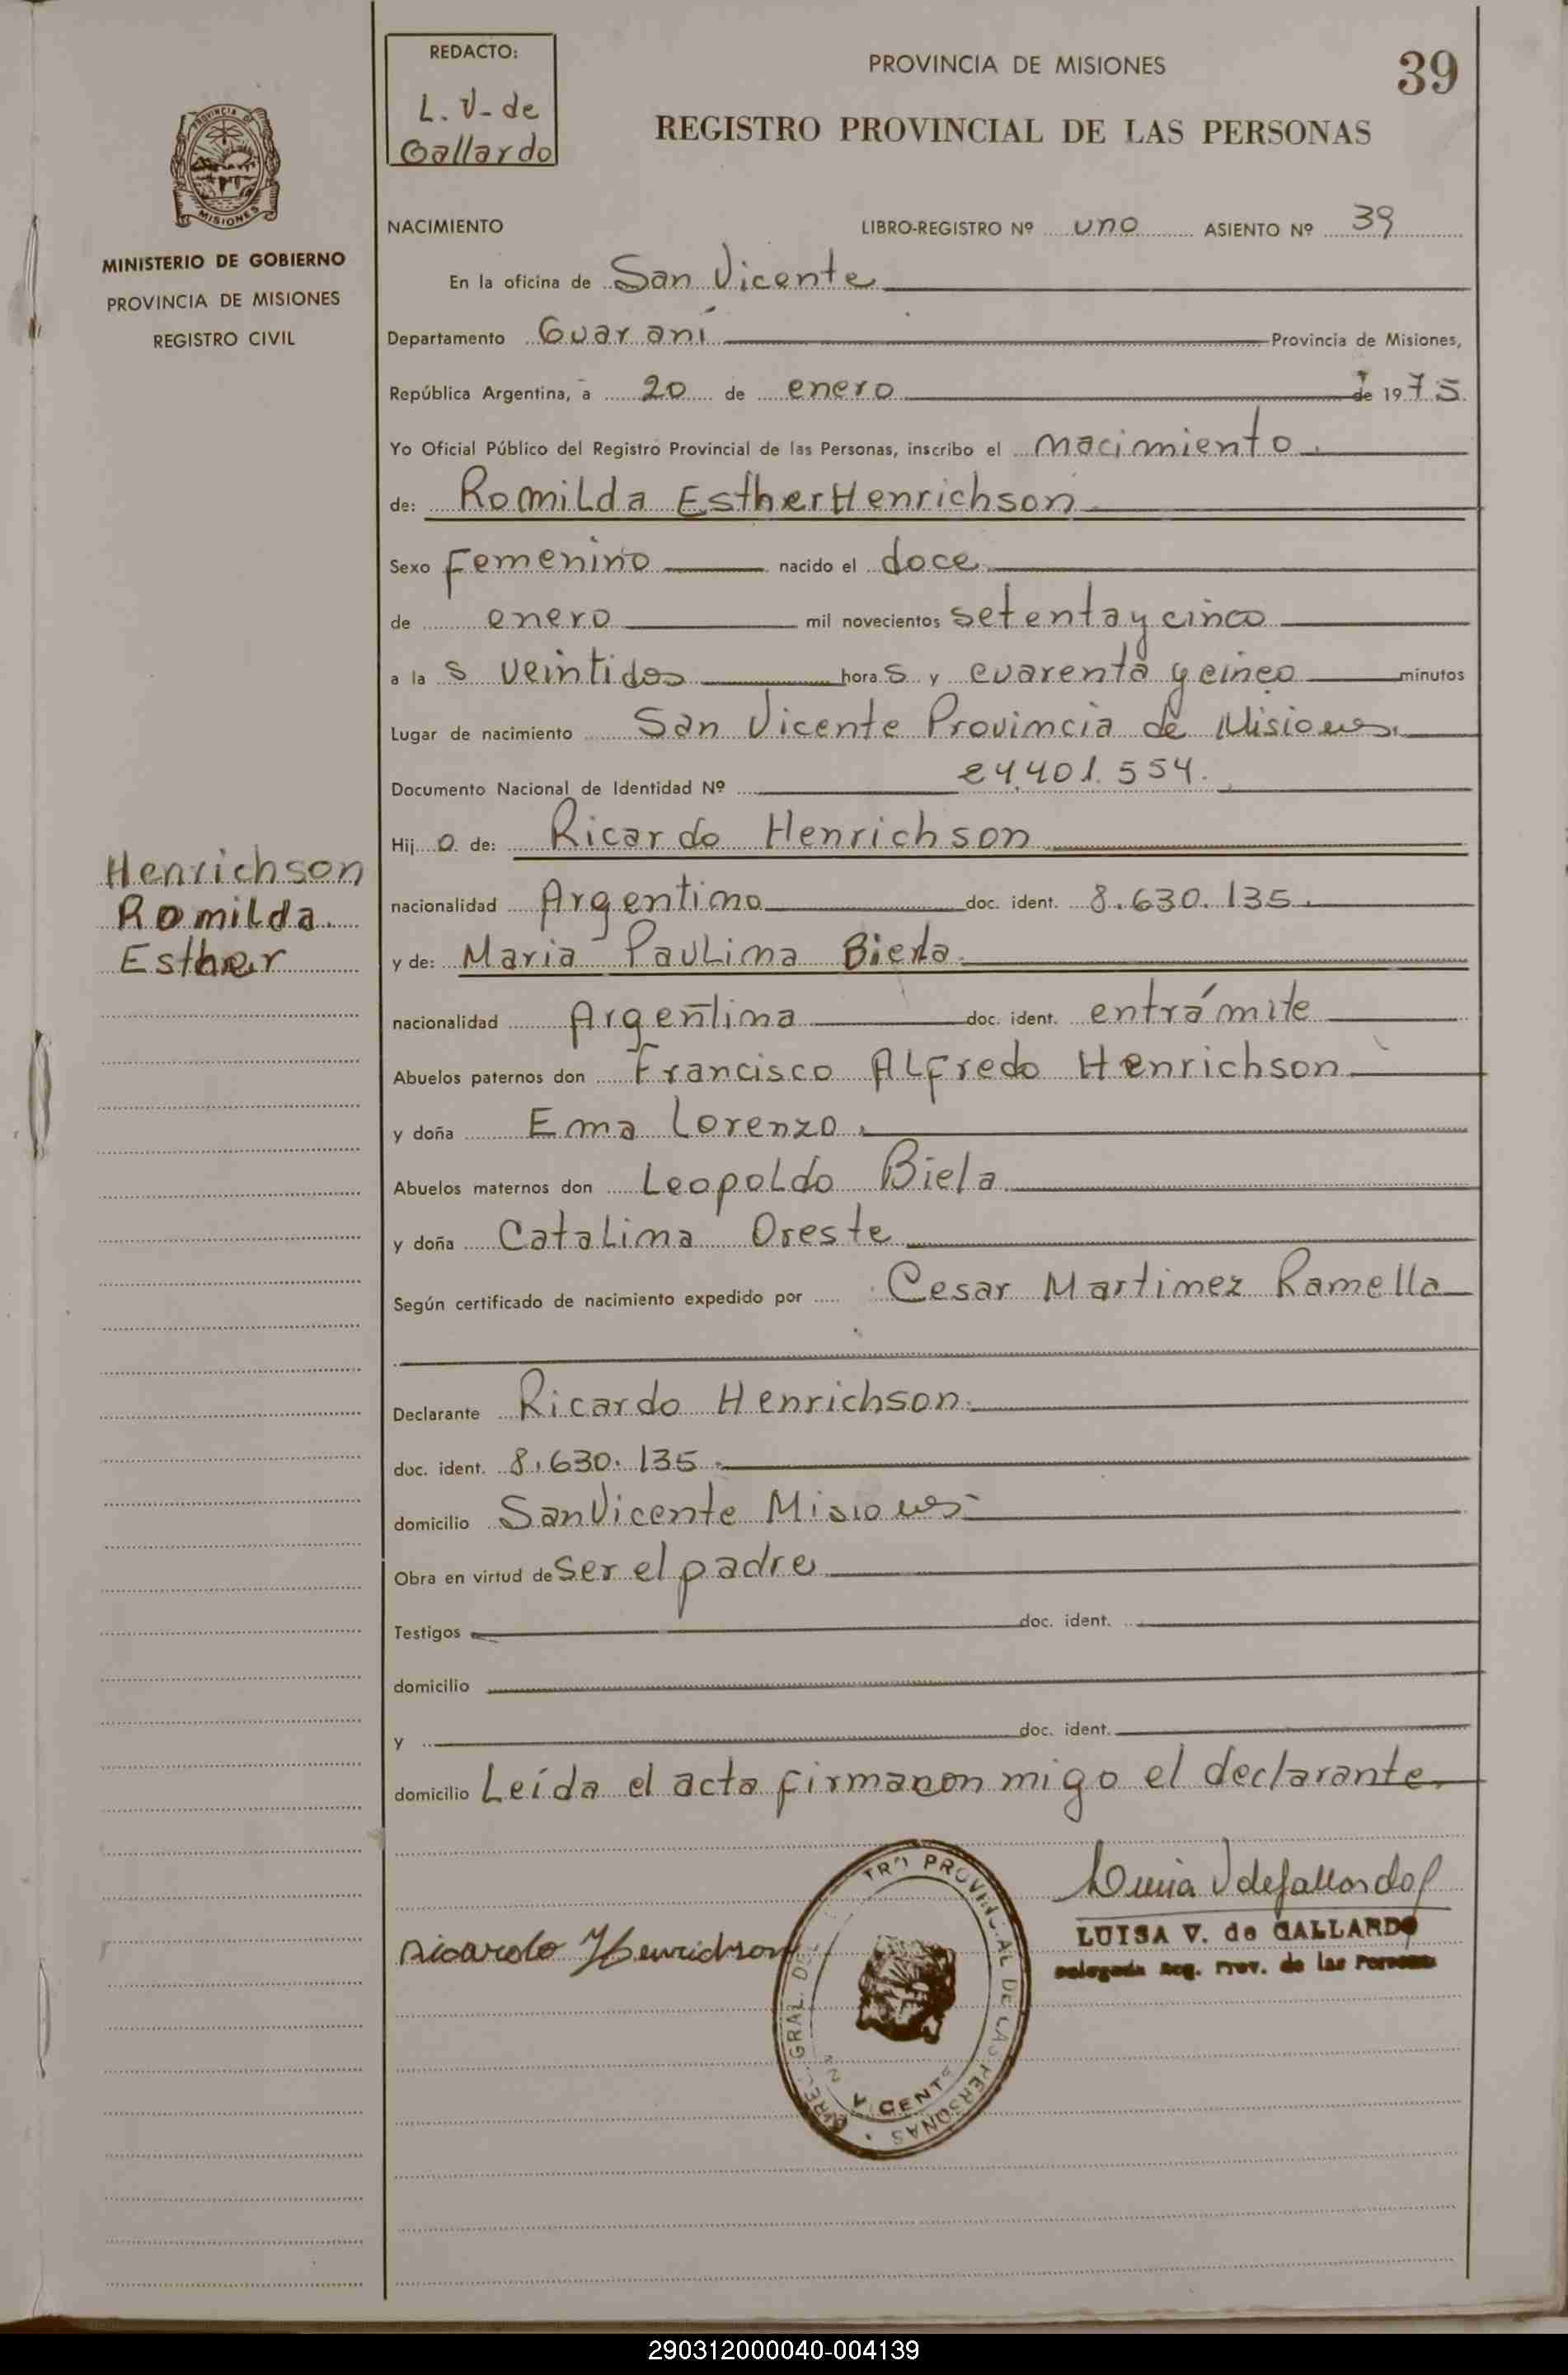 REDACTO:
L. V- de
Gallardo
PROVINCIA DE MISIONES
39
REGISTRO PROVINCIAL DE LAS PERSONAS
PROVINCIA D
MISIONES
MINISTERIO DE GOBIERNO
PROVINCIA DE MISIONES
REGISTRO CIVIL
NACIMIENTO LIBRO-REGISTRO Nº uno ASIENTO Nº 39
En la oficina de San Vicente
Departamento Guaraní Provincia de Misiones,
República Argentina, a 20 de enero de 1975.
Yo Oficial Público del Registro Provincial de las Personas, inscribo el nacimiento.
de: Romilda Esther Henrichson
Sexo Femenino nacido el doce
de enero mil novecientos setenta y cinco
a las veintidos horas y cuarenta y cinco minutos
Lugar de nacimiento San Vicente Provincia de Misiones.
Documento Nacional de Identidad Nº 24.401.554.
Hijo de: Ricardo Henrichson
nacionalidad Argentino doc. ident. 8.630.135.
y de: Maria Paulina
nacionalidad Argentina doc. ident. entrámite
Abuelos paternos don Francisco ALfredo Henrichson
y doña Ema Lorenzo.
Abuelos maternos don Leopoldo Biela
y doña Catalina Oreste
Según certificado de nacimiento expedido por Cesar Martinez Ramella
Declarante Ricardo Henrichson.
doc. ident. 8.630.135.
domicilio San Vicente Misiones
Obra en virtud de ser el padre
Testigos doc. ident.
domicilio
y doc. ident.
domicilio Leída el acta firma con migo el declarante.
Henrichson
Romilda.
Esther
Ricardo Henrichson
TRO PROVINCIAL DE LAS PERSONAS
GRAL. DEL
VICENTE
LUISA V. de GALLARDO
Delegada Reg. Prov. de las Personas
290312000040-004139